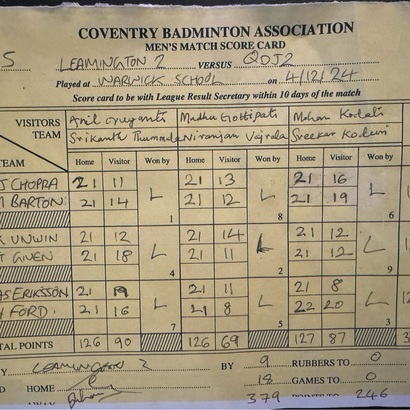 COVENTRY BADMINTON ASSOCIATION
MEN'S MATCH SCORE CARD
S LEAMINGTON 2 VERSUS QDJ2
Played at WARWICK SCHOOL on 4/12/24
Score card to be with League Result Secretary within 10 days of the match
VISITORS TEAM Anil Madhu Gottipati Mohan Kodali
Srikanth Thummala Niranjan Vajrala Sreekar Koduri
TEAM Home Visitor Won by Home Visitor Won by Home Visitor
J CHOPRA 21 11 L 21 13 L 21 16 L
BARTON 21 14 1 21 12 8 21 19 6
UNWIN 21 12 L 21 14 L 21 12 L
GIVEN 21 18 4 21 11 2 21 12 9
ERIKSSON 21 19 L 21 11 L 21 8 L
FORD 21 16 7 21 8 5 22 20 3
TOTAL POINTS 126 90 126 69 127 87
Y LEAMINGTON 2 BY 9 RUBBERS TO 0
D HOME 18 GAMES TO 0
379 POINTS TO 246